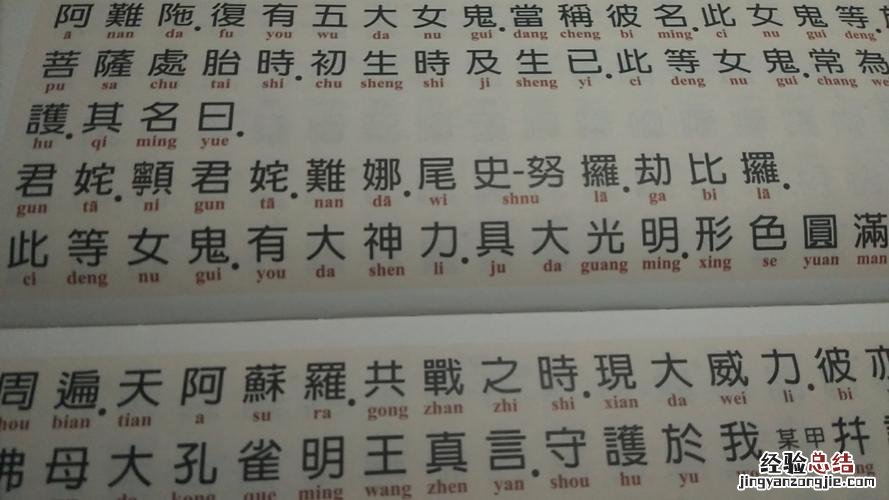 阿難陁.復有五大女鬼.當稱彼名.此女鬼等.
ā nan da fu you wu da nu gui dang cheng bi ming ci nu gui deng
菩薩處胎時.初生時及生已.此等女鬼.常為
pu sa chu tai shi chu sheng shi ji sheng yi ci deng nu gui chang we
護.其名曰.
hu qi ming yue
君姹.顊君姹.難娜.尾史-努攞.劫比攞.
gun tā ni gun tā nan dā wi shnu lā ga bi lā
此等女鬼.有大神力.具大光明.形色圓滿
ci deng nu gui you da shen li ju da guang ming xing se yuan man
周遍.天阿蘇羅.共戰之時.現大威力.彼亦
hou bian tian a su ra gong zhan zhi shi xian da wei li bi
佛母大孔雀明王真言.守護於我某甲并
da kong que ming wang zhen yan shou hu yu
经验总结
jingyanzongjie.com